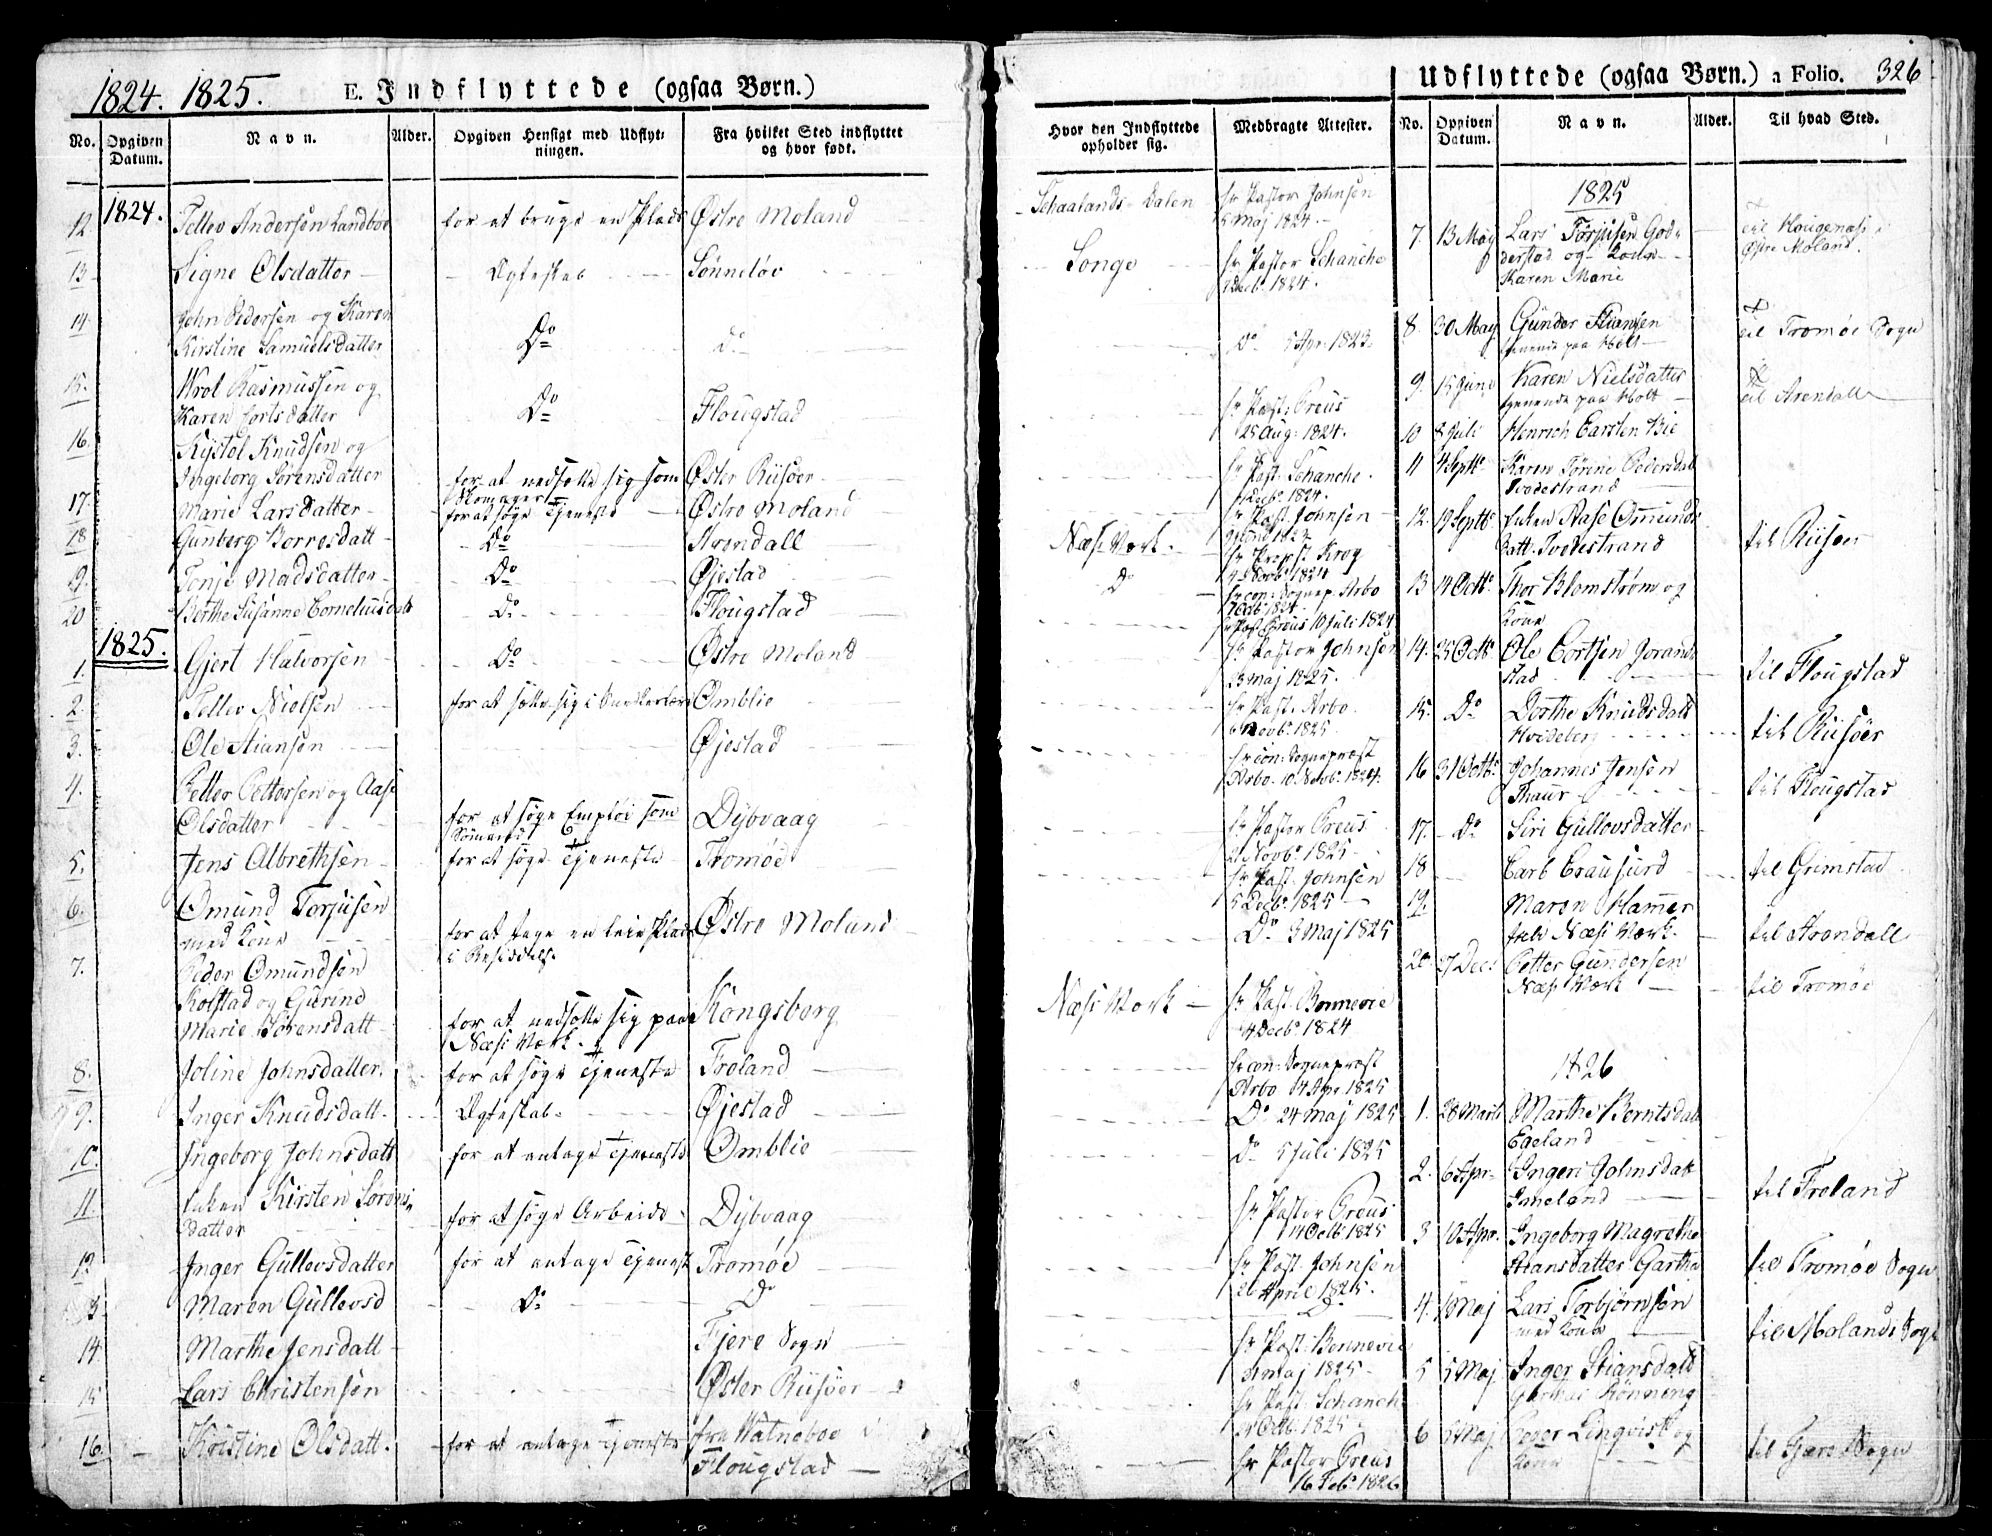 1824. 1825.
E. Indflyttede (ogsaa Børn.)
No.
Opgiven Datum.
Navn.
Alder.
Opgiven Hensigt med Udflyt-
ningen.
Fra hvilket Sted indflyttet
og hvor født.
1824.
12
Tellev Andersen Landboe
for at bruge en Plads
Østre Moland
13
Signe Olsdatter
Ægteskab
Sønneløv
14
John Pedersen og Karen
Kirstine Samuelsdatter
Do
Do
15.
Wrol Rasmussen og
Karen Cortsdatter
Do
Flougstad
16.
Knudsen og
Ingeborg Sørensdatter
for at nedsætte sig som
Øster Riisøer
17.
Marie Larsdatter
for at søge Tjeneste
Østre Moland
18
Gunberg Borresdatt
Do
Arendall
9.
Tonje Madsdatter
Do
Øjestad
20
Berthe Susanne Corneliusdatt
Do
Flougstad
1825.
1.
Gjert Halvorsen
Do
Østre Moland
2.
Tellev Nielsen
for at sætte sig i
Omblie
3.
Ole Stiansen
Øjestad
4.
Petter Pettersen og Aase
Olsdatter
for at søge Emploi som
Sømand
Dybvaag
5.
Jens Albrethsen
for at søge Tjeneste
Tromøe
6.
Omund Torjusen
med Kone
for at tage en leie Plads
Østre Moland
7.
Peder Omundsen
Kolstad og Gurine
Marie Sørensdatt
for at nedsætte sig paa
Næs Værk.
Kongsberg
8.
Joline Johnsdatter.
for at søge Tjeneste
Froland
9.
Inger Knudsdatt.
Ægteskab
Øjestad
10.
Ingeborg Johnsdatt
for at antage Tjeneste
Omblie
11
Enken Kirsten Sørens-
datter
for at søge Arbeide
Dybvaag
12
Inger Gullovsdatter
for at antage Tjeneste
Tromøe
3.
Maren Gullovsd
Do
Do
14
Marthe Jensdatt
Fjere Sogn
15
Lars Christensen
Øster Riisøer
16.
Kristine Olsdatt.
for at antage Tjeneste
fra Watneboe
Flougstad
Udflyttede (ogsaa Børn.) a Folio. 326
Hvor den Indflyttede
opholder sig.
Medbragte Attester.
No.
Opgiven
Datum.
Navn.
Alder.
Til hvad Sted.
Schaalands-Dalen
Hr Pastor Johnsen
5 Maj 1824.
Songe
Hr Pastor Schanche
Decb. 1824.
Do 5 Apr: 1823.
Hr Past: Preus
25 Aug: 1824.
Hr Past: Schanche.
Decb. 1824.
Hr Past: Johnsen
Næs Værk.
Hr Propst Krog
4 Novb. 1824
Do
Hr con: Sognep. Arbo
7 Octb. 1824.
Hr Past Preus 10 Juli 1824
Hr Pastor Johnsen
23 Maj 1825.
Hr Past: Arbo
6 Novb. 1825
Hr con: Sognepræst
Arbo. 10. Novb. 1824.
Hr Pastor Preus
2 Novb. 1825
Hr Past: Johnsen
5 Decb. 1825
Do 3 Maj 1825
Næs Værk
Hr Past: Bonnevie
4 Decb. 1824
Hr con: Sognepræst
Arbo 14 Apr. 1825
Do 24 Maj 1825
Do 5 Juli 1825
Hr Pastor Preus
14 Octb. 1825
Hr Past: Johnsen
20 April 1825.
Do
Hr Past: Bonnevie
Maj 1825.
Hr Past: Schanch
Octb. 1825
Hr Pastor Preus
16 Feb. 1826
1825
7.
13 May
Lars Torjusen God-
derstad og Kone
Karen Marie
til Hougenæs i
Østre Moland.
8.
30 May
Gunder Hansen
tjenende paa Holt
til Tromøe Sogn
9.
15 Juni
Karen Nielsdatter
tjenende paa Holt
til Arendall
10
8 Juli
Henrich Carsten Bie
11
4 Septb.
Karen Torine Pedersdatt
Tvedestrand
12.
19 Septb.
Enken Aase Omunds
datt. Tvedestrand
til Riisøer
13
14 Octb.
Thor Blomstrøm og
Kone
14.
25 Octb.
Ole Cortsen Jorand-
stad
til Flougstad
15.
Do
Dorthe Knudsdatt
Hvideberg
til Riisöer
16
31 Octb.
Johannes Jensen
Thaur
til Flougstad
17.
Do
Siri Gullovsdatter
18
Carl
til Grimstad
19.
Maren Hammer
Næs Værk.
til Arendall
20.
27 Dec.
Petter Gundersen
Næs Værk
til Tromøe
1826
1.
28 Marts
Marthe Berntsdatt
Egeland
2.
6 Apr.
Ingeri Johnsdatt
Imeland
til Froland
3
10 Apr.
Ingeborg Magrethe
Stiansdatter Gartha
til Tromøe Sogn
4.
1 Maj
Lars Torbjørnsen
med Kone
til Molands Sogn
5
5 Maj
Inger Stiansdatt
6
Maj
Peder Linqvist og
Kone
til Fjære Sogn